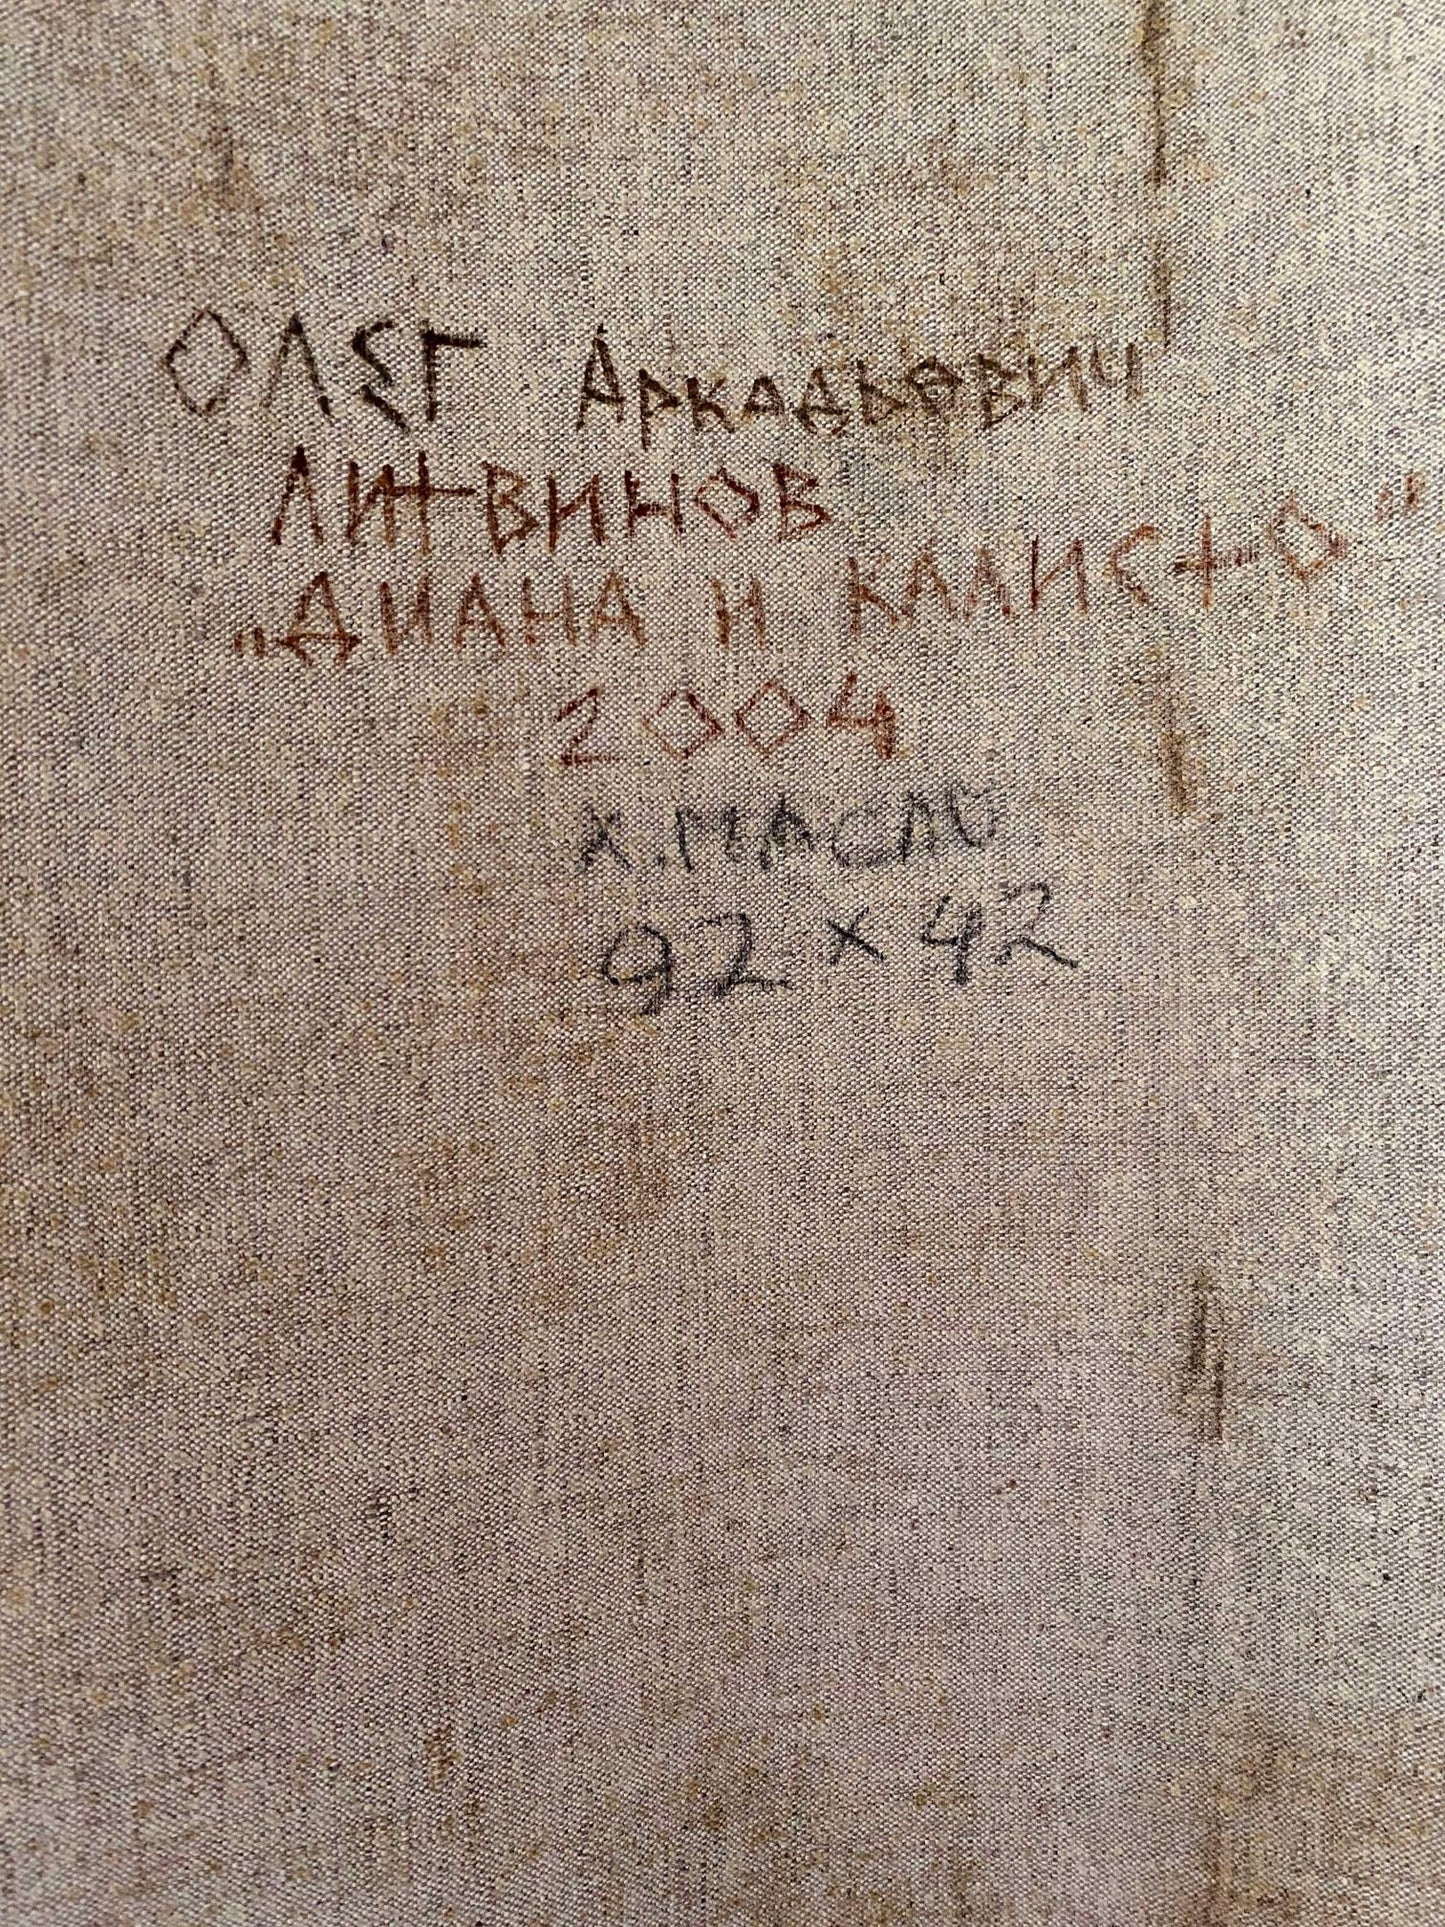 ОЛЕГ АРКАДЬЕВИЧ
ЛИТВИНОВ
„ДИАНА И КАЛИСТО"
2004
Х. МАСЛО
92 х 42